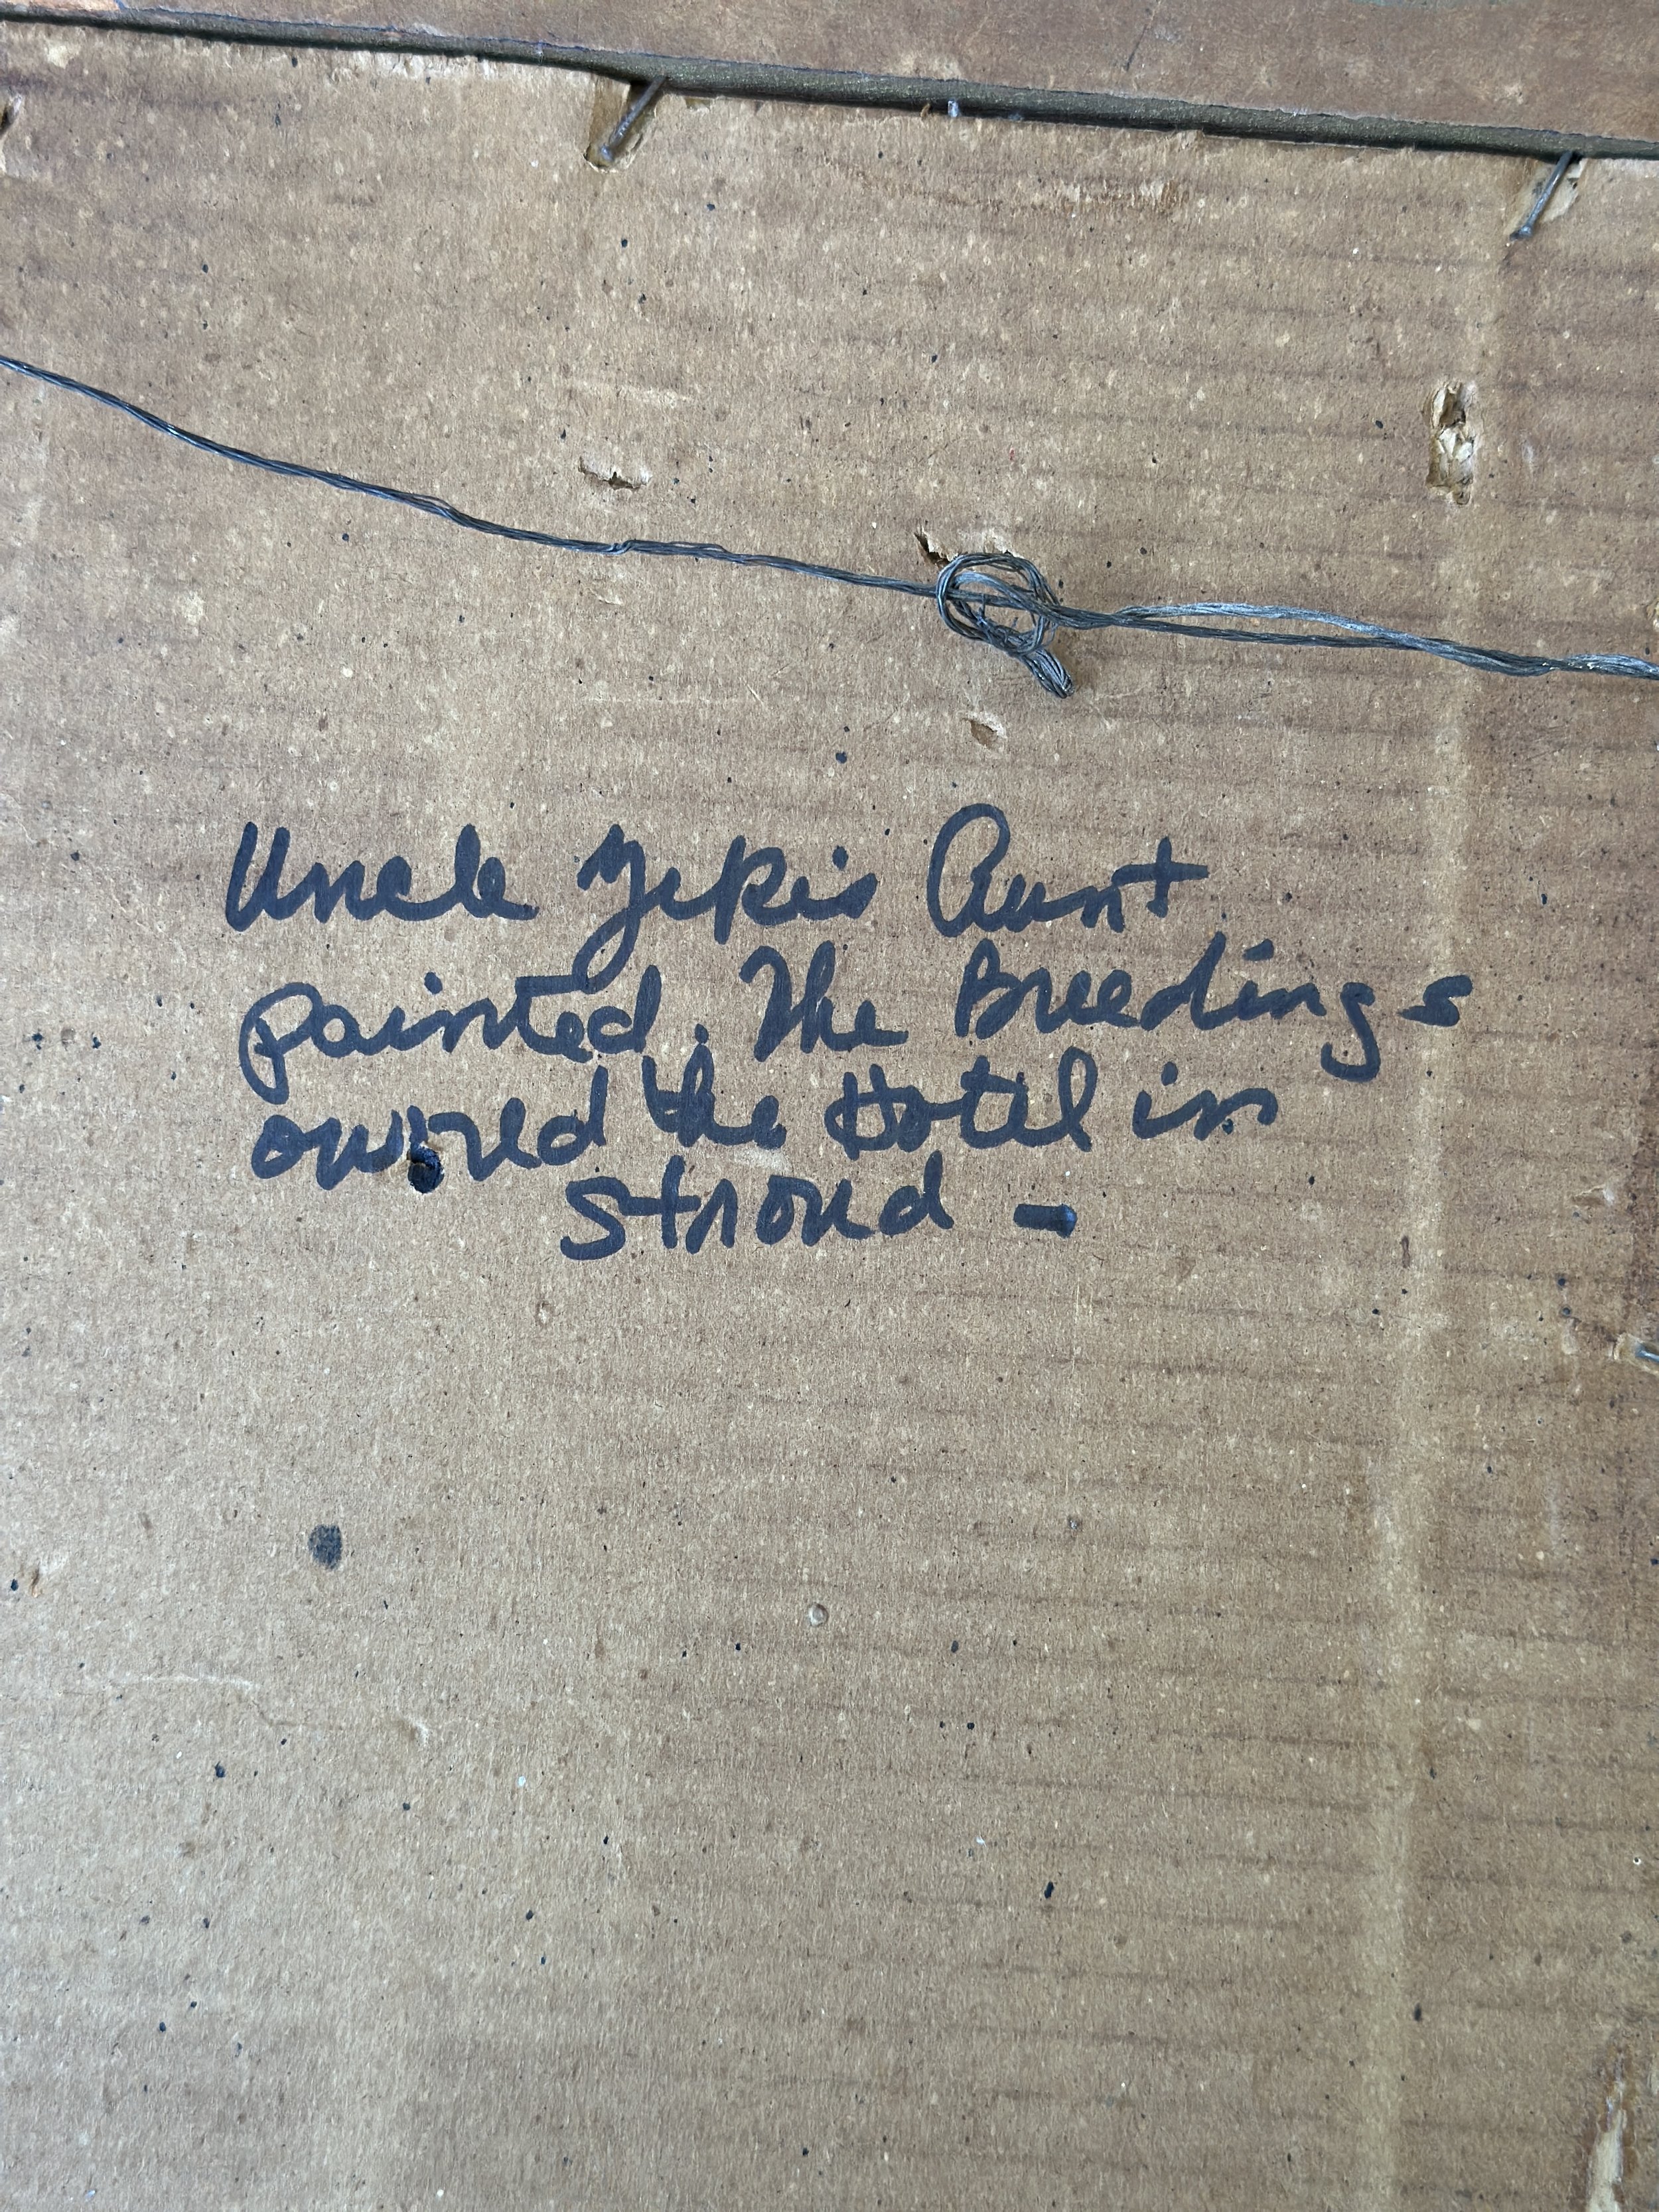 Uncle Zeke's Aunt
painted. The Breedings
owned the Hotel in
Stroud -